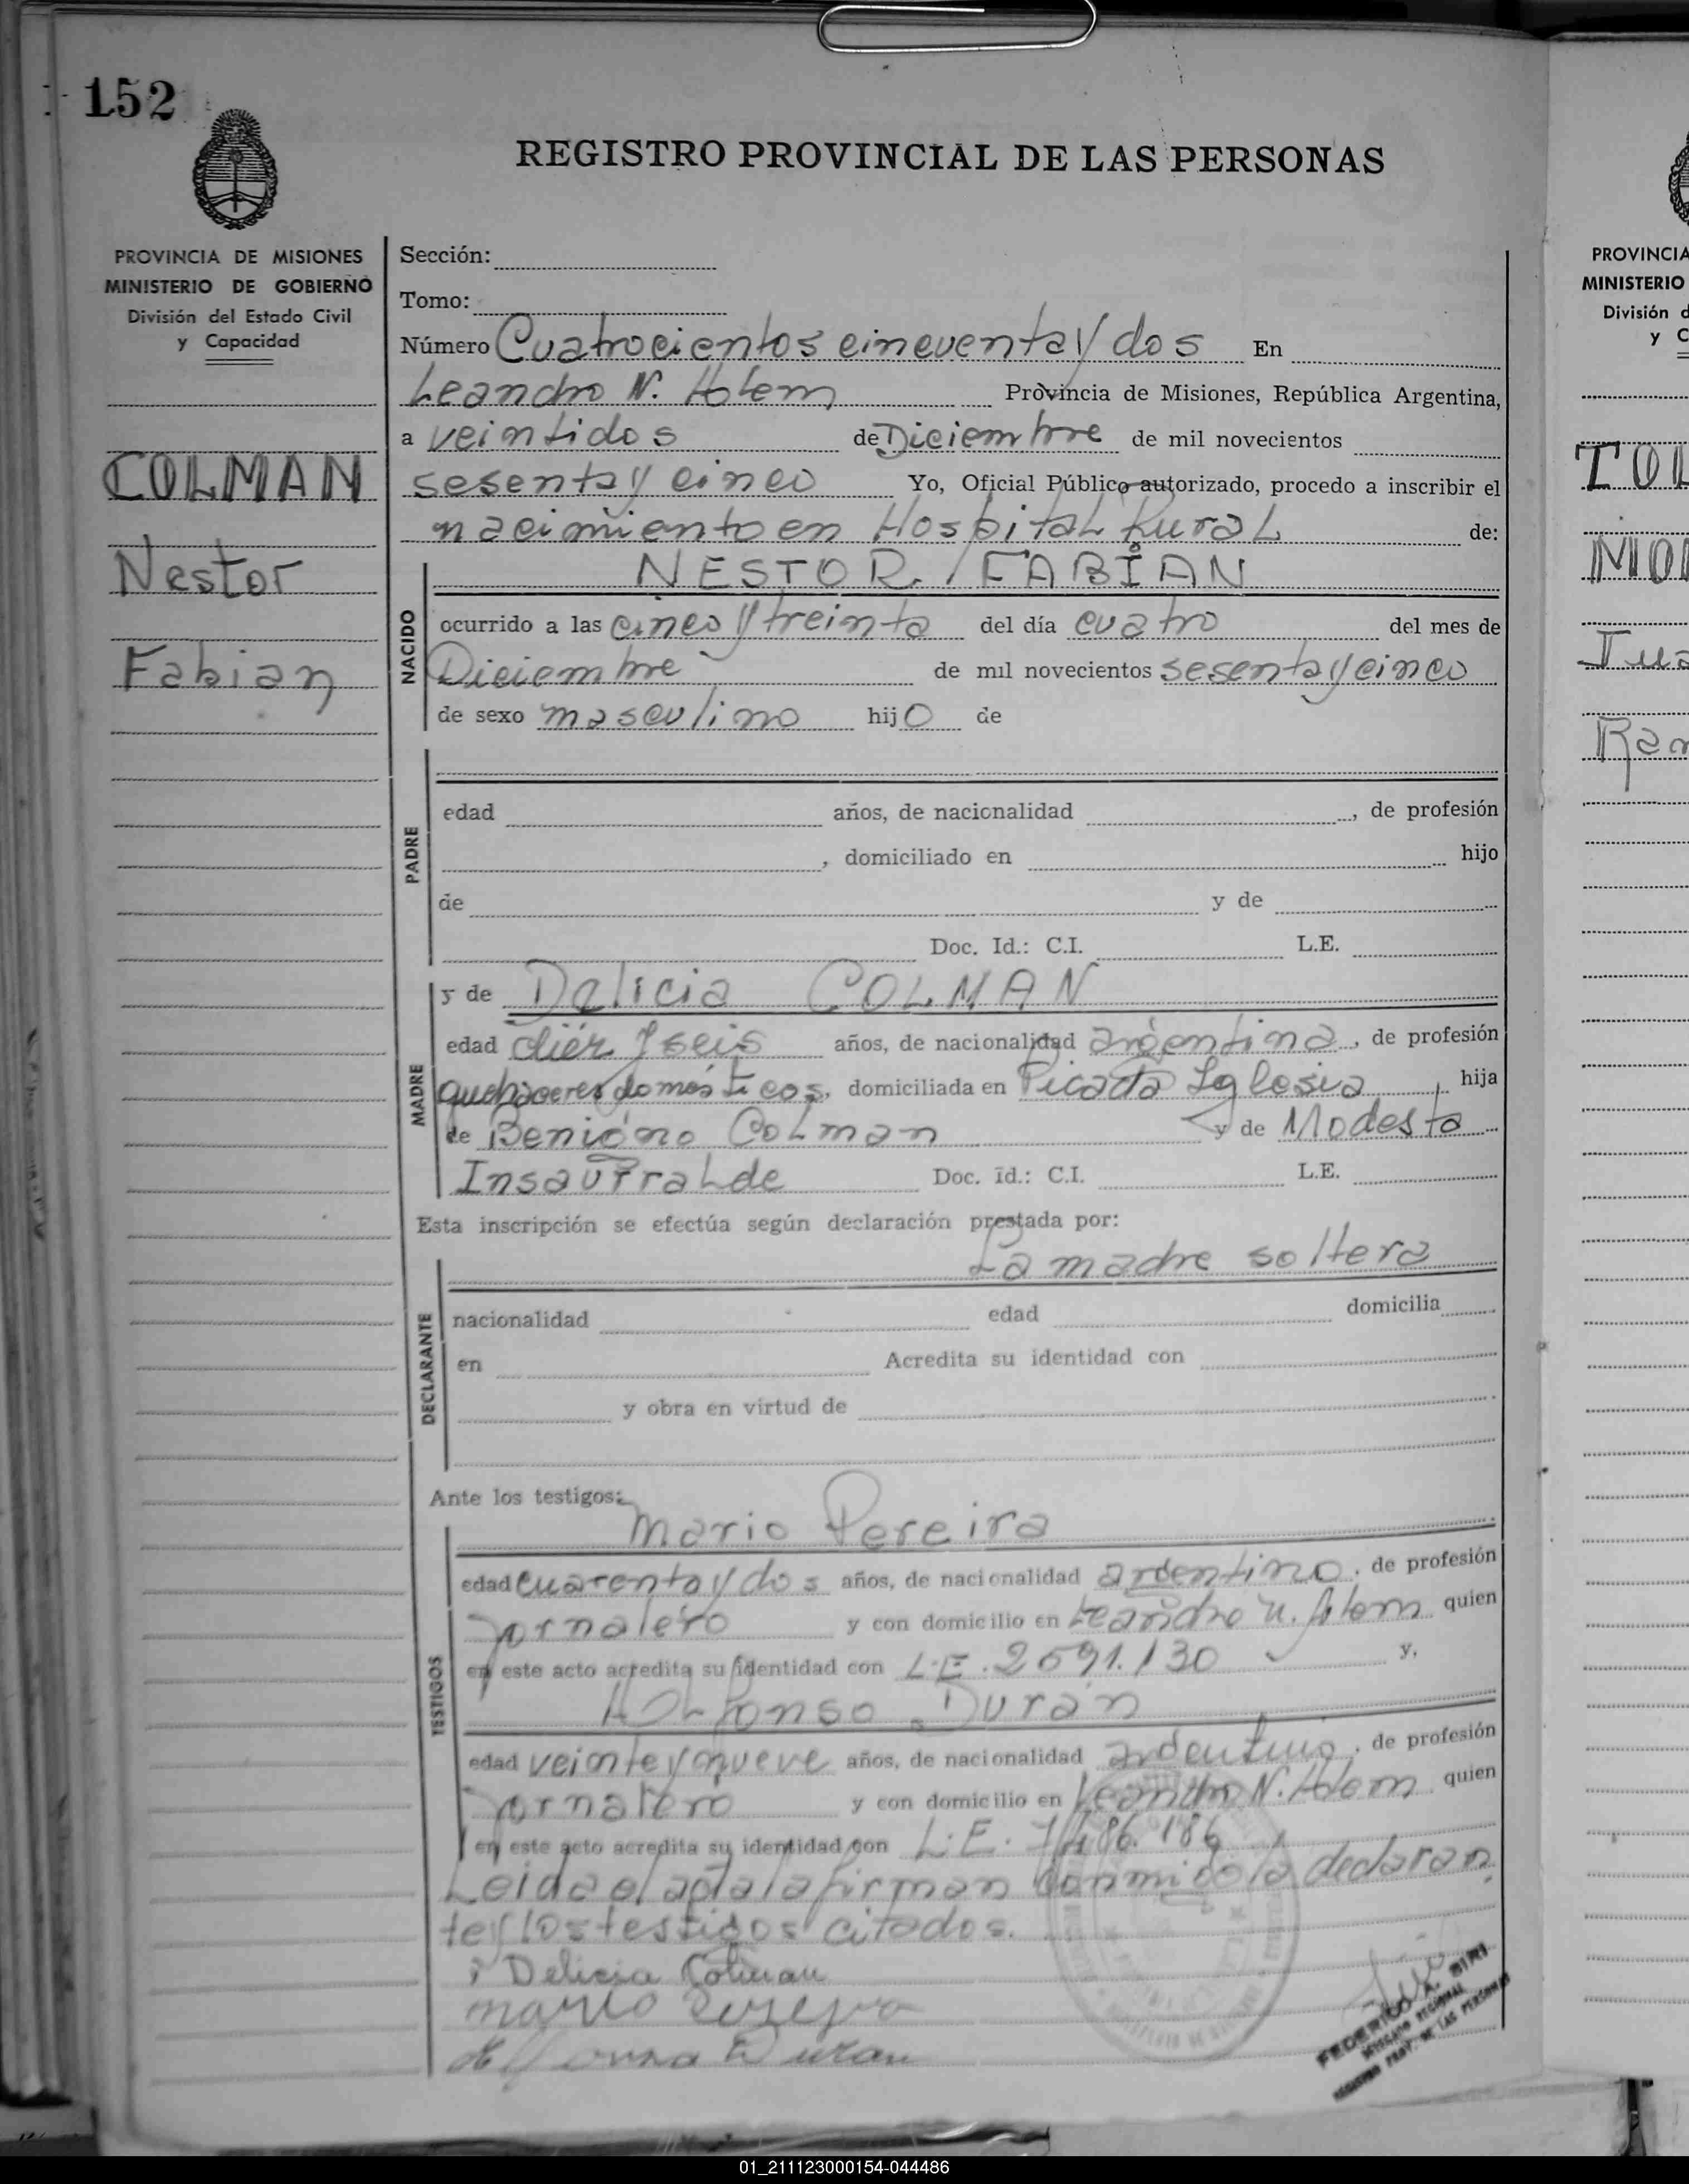 152
REGISTRO PROVINCIAL DE LAS PERSONAS
PROVINCIA DE MISIONES
MINISTERIO DE GOBIERNO
División del Estado Civil
y Capacidad
COLMAN
Nestor
Fabian
Sección:
Tomo:
Número Cuatrocientos cincuenta y dos En
Leandro N. Alem Provincia de Misiones, República Argentina,
a veintidos de Diciembre de mil novecientos
sesenta y cinco Yo, Oficial Público autorizado, procedo a inscribir el
nacimiento en Hospital Rural de:
NACIDO
NESTOR FABIAN
ocurrido a las cinco y treinta del día cuatro del mes de
Diciembre de mil novecientos sesenta y cinco
de sexo masculino hijo de
PADRE
edad años, de nacionalidad , de profesión
, domiciliado en hijo
de y de
Doc. Id.: C.I. L.E.
MADRE
y de Delicia COLMAN
edad diez y seis años, de nacionalidad argentina, de profesión
quehaceres domésticos, domiciliada en Picada Iglesia, hija
de Benigno Colman y de Modesta
Insaurralde Doc. id.: C.I. L.E.
Esta inscripción se efectúa según declaración prestada por:
La madre soltera
DECLARANTE
nacionalidad edad domicilia
en Acredita su identidad con
y obra en virtud de
Ante los testigos:
TESTIGOS
Mario Pereira
edad cuarenta y dos años, de nacionalidad argentino, de profesión
Jornalero y con domicilio en Leandro N. Alem quien
en este acto acredita su identidad con L.E. 2591.130 y,
Alfonso Durán
edad veinte y nueve años, de nacionalidad argentino, de profesión
Jornalero y con domicilio en Leandro N. Alem quien
en este acto acredita su identidad con L.E.
Leida el acta la firman conmigo la declaran
te y los testigos citados.
Delicia Colman
Mario Pereyra
Duran
FEDERICO A. SIRI
DELEGADO REGIONAL
REGISTRO PROV. DE LAS PERSONAS
PROVINCIA
MINISTERIO
División d
y C
TOL
Jua
Ram
01_211123000154-044486